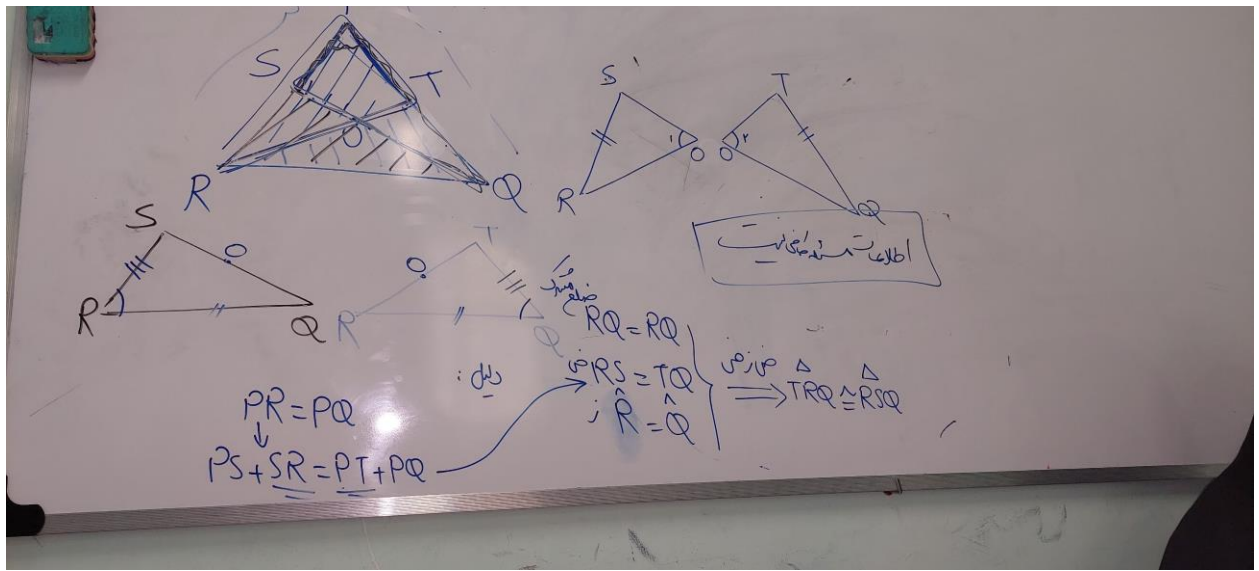 S
T
O
R
Q
S
۱
O
R
T
۲
O
Q
اطلاعات مسئله کافی نیست
S
O
R
Q
T
O
R
Q
ضلع مشترک
RQ = RQ
ض RS = TQ
ز R̂ = Q̂
ض ز ض
⟹ TRQ ≅ RSQ
دلیل :
PR = PQ
↓
PS + SR = PT + PQ